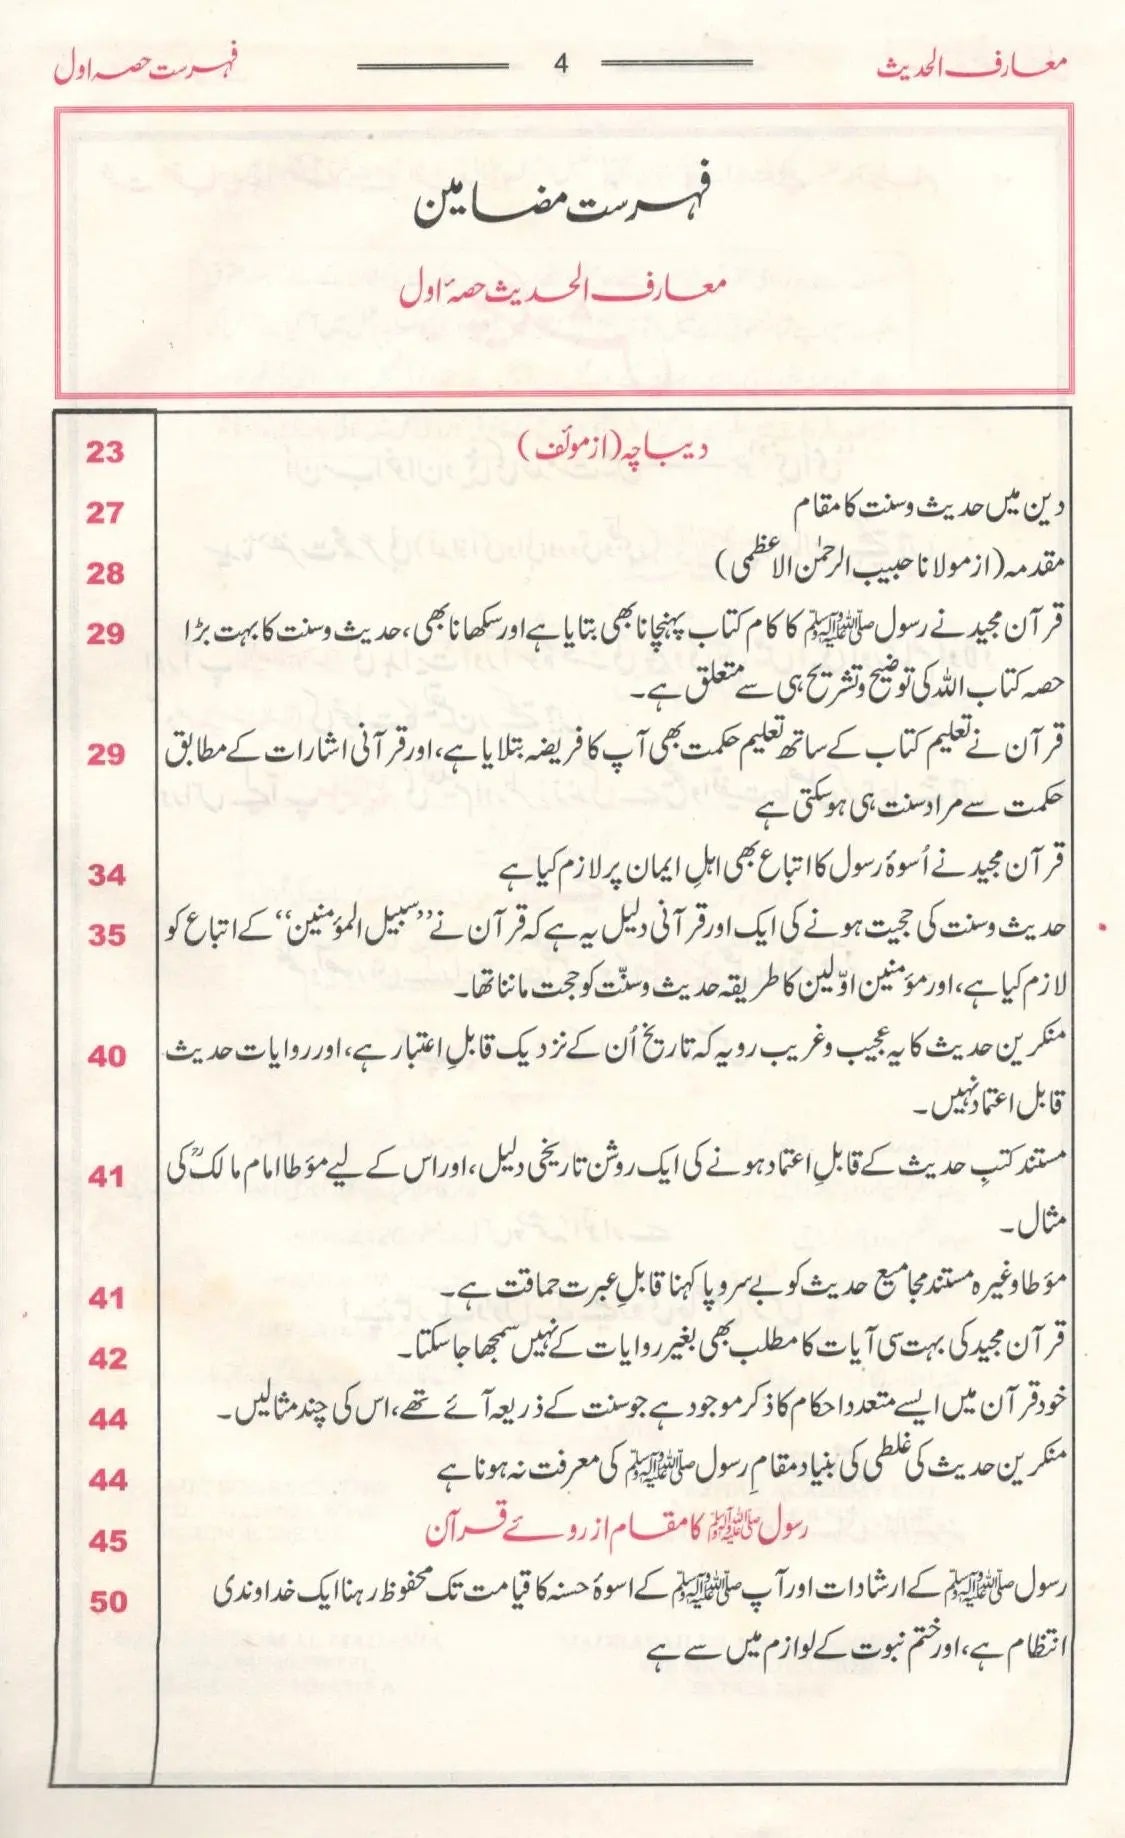 معارف الحدیث 4 فہرست حصہ اول
فہرست مضامین
معارف الحدیث حصۂ اول
دیباچہ (از مولف) 23
دین میں حدیث و سنت کا مقام 27
مقدمہ (از مولانا حبیب الرحمٰن الاعظمی) 28
قرآن مجید نے رسول ﷺ کا کام کتاب پہنچانا بھی بتایا ہے اور سکھانا بھی، حدیث و سنت کا بہت بڑا 29
حصہ کتاب اللہ کی توضیح و تشریح ہی سے متعلق ہے۔
قرآن نے تعلیم کتاب کے ساتھ تعلیم حکمت بھی آپ کا فریضہ بتلایا ہے، اور قرآنی اشارات کے مطابق 29
حکمت سے مراد سنت ہی ہو سکتی ہے
قرآن مجید نے اُسوۂ رسول کا اتباع بھی اہلِ ایمان پر لازم کیا ہے 34
حدیث و سنت کی حجیت ہونے کی ایک اور قرآنی دلیل یہ ہے کہ قرآن نے ”سبیل المؤمنین“ کے اتباع کو 35
لازم کیا ہے، اور مؤمنین اوّلین کا طریقہ حدیث و سنّت کو حجت ماننا تھا۔
منکرین حدیث کا یہ عجیب و غریب رویہ کہ تاریخ اُن کے نزدیک قابلِ اعتبار ہے، اور روایات حدیث 40
قابل اعتماد نہیں۔
مستند کتبِ حدیث کے قابلِ اعتماد ہونے کی ایک روشن تاریخی دلیل، اور اس کے لیے مؤطا امام مالکؒ کی 41
مثال۔
مؤطا وغیرہ مستند مجامیع حدیث کو بے سروپا کہنا قابلِ عبرت حماقت ہے۔ 41
قرآن مجید کی بہت سی آیات کا مطلب بھی بغیر روایات کے نہیں سمجھا جا سکتا۔ 42
خود قرآن میں ایسے متعدد احکام کا ذکر موجود ہے جو سنت کے ذریعہ آئے تھے، اس کی چند مثالیں۔ 44
منکرین حدیث کی غلطی کی بنیاد مقامِ رسول ﷺ کی معرفت نہ ہونا ہے 44
رسول ﷺ کا مقام از روئے قرآن 45
رسول ﷺ کے ارشادات اور آپ ﷺ کے اسوۂ حسنہ کا قیامت تک محفوظ رہنا ایک خداوندی 50
انتظام ہے، اور ختم نبوت کے لوازم میں سے ہے